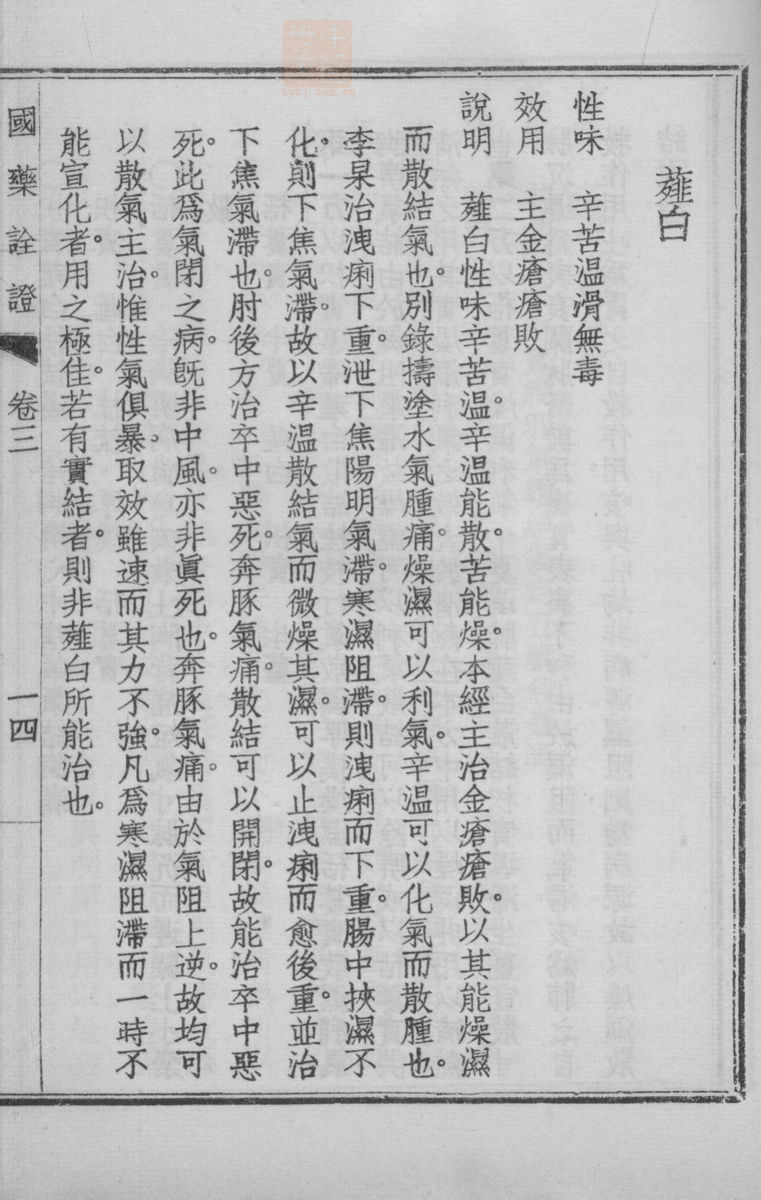 薤白
性味　辛苦温滑無毒
效用　主金瘡瘡敗
說明　薤白性味辛苦温。辛温能散。苦能燥。本經主治金瘡瘡敗。以其能燥濕
而散結氣也。別錄擣塗水氣腫痛。燥濕可以利氣。辛温可以化氣而散腫也。
李杲治洩痢下重。泄下焦陽明氣滯。寒濕阻滯。則洩痢而下重。腸中挾濕不
化。則下焦氣滯。故以辛温散結氣而微燥其濕。可以止洩痢而愈後重。並治
下焦氣滯也。肘後方治卒中惡死。奔豚氣痛。散結可以開閉。故能治卒中惡
死。此爲氣閉之病。旣非中風。亦非眞死也。奔豚氣痛。由於氣阻上逆。故均可
以散氣主治。惟性氣俱暴。取效雖速而其力不強。凡爲寒濕阻滯而一時不
能宣化者。用之極佳。若有實結者。則非薤白所能治也。
國藥詮證
卷三
一四